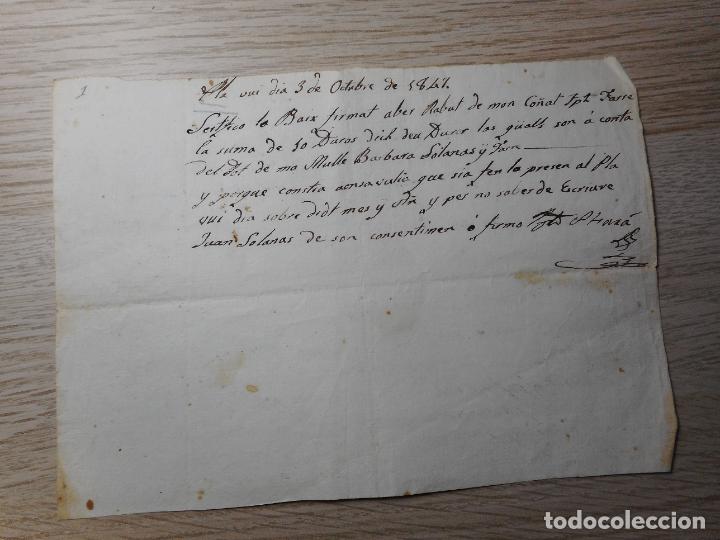 1
Pla vui dia 3 de Octubre de 1841.
Sertfico lo Baix firmat aber Rabut de mon Coñat Jph Farre
la suma de 10 Duros dich deu Duros los quals son á conta
del Dot de ma Mulle Barbara Solanas y Farre
y porque constia aonsavulla que sia fen lo presen al Pla
vui dia sobre didt mes y añ y per no saber de Escriure
Juan Solanas de son consentimen ó firmo
todocoleccion.net